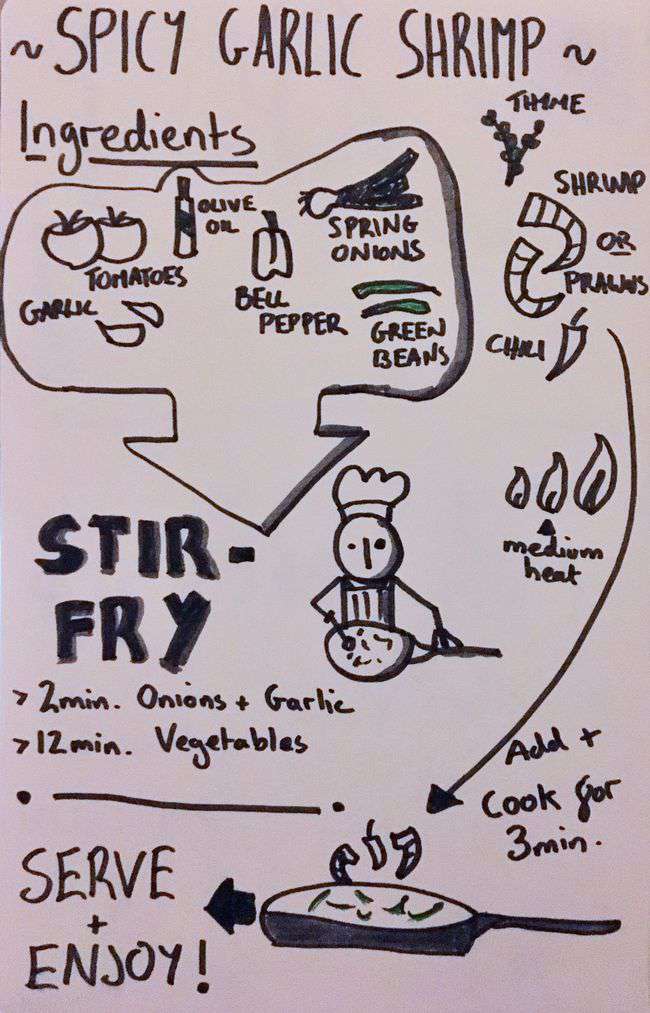 ~ SPICY GARLIC SHRIMP ~
Ingredients
THYME
SHRIMP
OR
PRAWNS
CHILI
OLIVE
OIL
SPRING
ONIONS
TOMATOES
GARLIC
BELL
PEPPER
GREEN
BEANS
medium
heat
STIR-
FRY
> 2min. Onions + Garlic
> 12min. Vegetables
Add +
Cook for
3min.
SERVE
+
ENJOY!